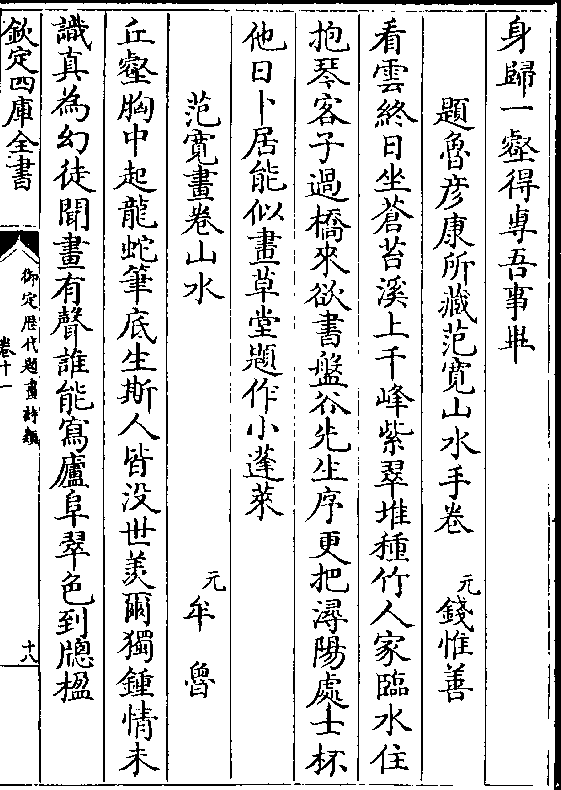 身歸一壑得專吾事與
題魯彦康所藏范寛山水手卷　元　錢惟善
看雲終日坐蒼苔溪上千峰紫翠堆種竹人家臨水住
抱琴客子過橋來欲書盤谷先生序更把潯陽處士杯
他日卜居能似畫草堂題作小蓬萊
范寛畫卷山水　元　牟魯
丘壑胸中起龍蛇筆底生斯人皆没世羨爾獨鍾情未
識真為幻徒聞畫有聲誰能寫廬阜翠色到牕楹
欽定四庫全書
御定歴代題畫詩類
卷十一
十八